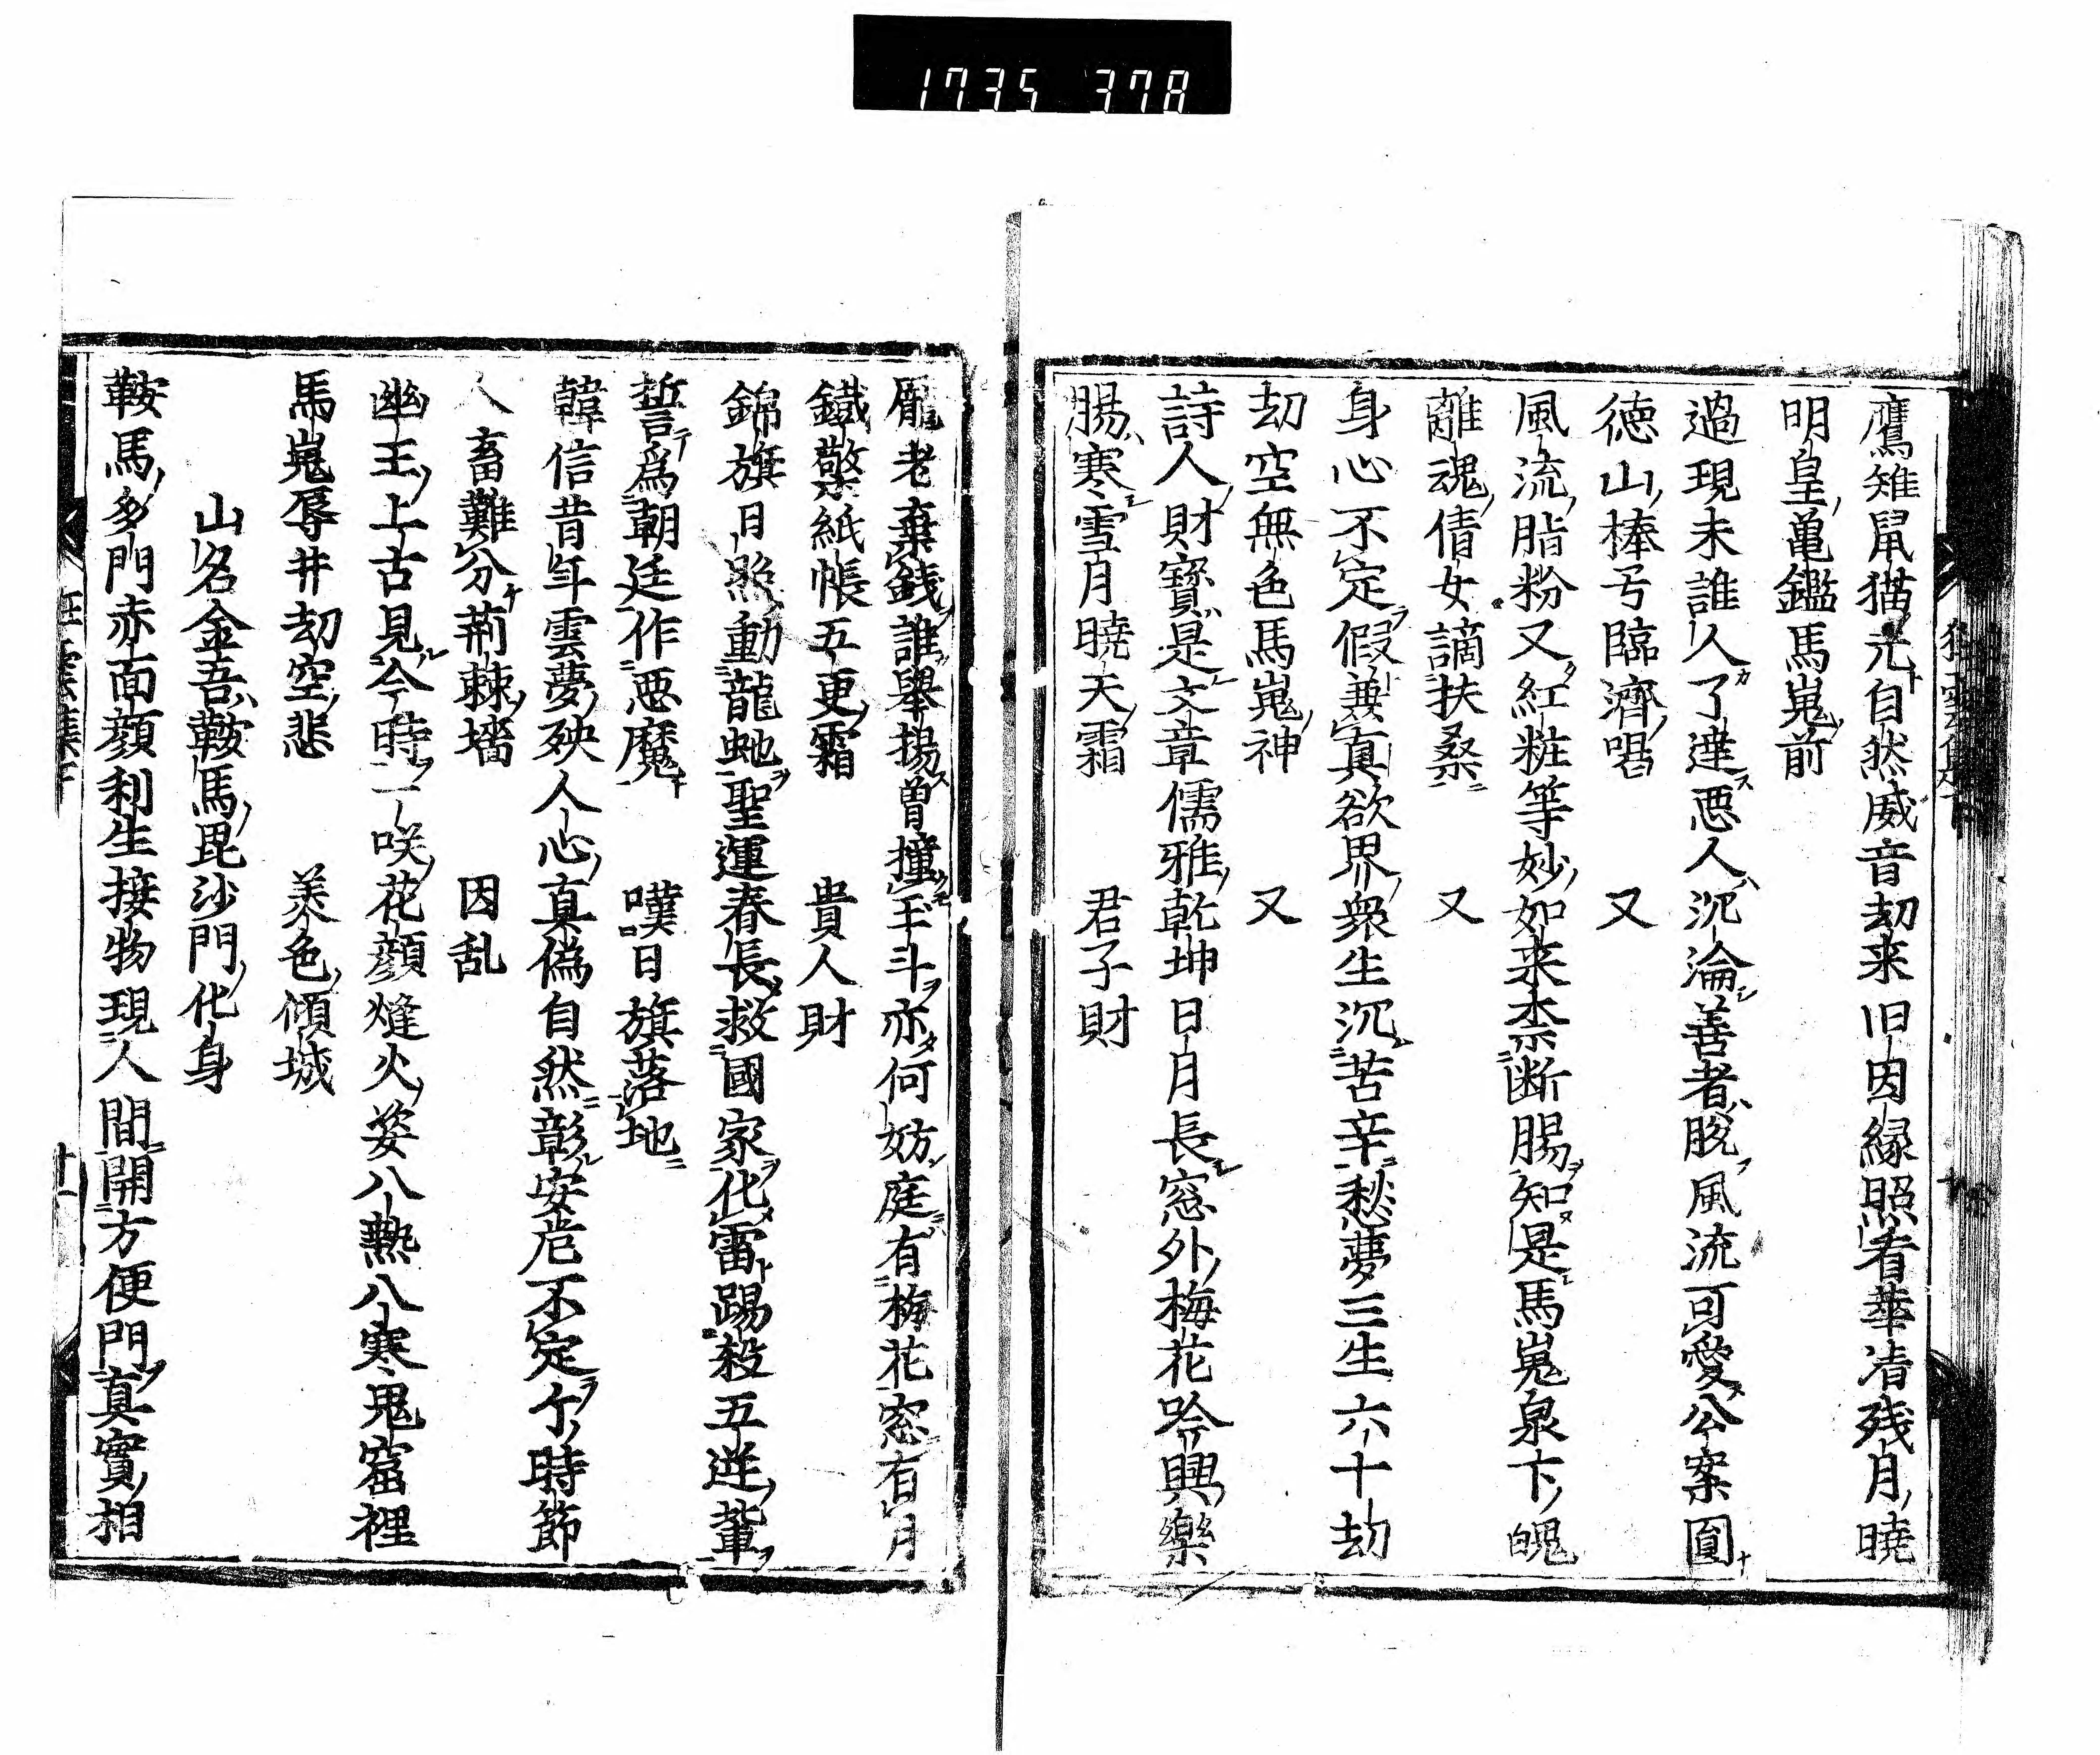 1735 378
鷹雉鼠猫元自然威音劫来旧因縁照看華清残月曉
明皇亀鑑馬嵬前
過現未誰人了達悪人沉淪善者脱風流可愛公案圓
徳山棒号臨濟喝　又
風流脂粉又紅粧等妙如来柰断腸知是馬嵬泉下魄
離魂倩女謫扶桑　又
身心不定假兼真欲界衆生沉苦辛愁夢三生六十劫
劫空無色馬嵬神　又
詩人財寳是文章儒雅乾坤日月長窓外梅花吟興樂
腸寒雪月曉天霜　君子財
龐老棄銭誰舉揚曽撞玉斗亦何妨庭有梅花窓有月
鐵檠紙帳五更霜　貴人財
錦旗日照動龍虵聖運春長救國家化雷踢殺五逆輩
誓爲朝廷作悪魔　嘆日旗落地
韓信昔年雲夢殃人心真偽自然彰安危不定个時節
人畜難分荊棘墻　因乱
幽王上古見今時一咲花顔熢火姿八熱八寒鬼窟裡
馬嵬辱井劫空悲　美色傾城
山名金吾鞍馬毘沙門化身
鞍馬多門赤面顔利生接物現人間開方便門真實相
狂雲集下
十一